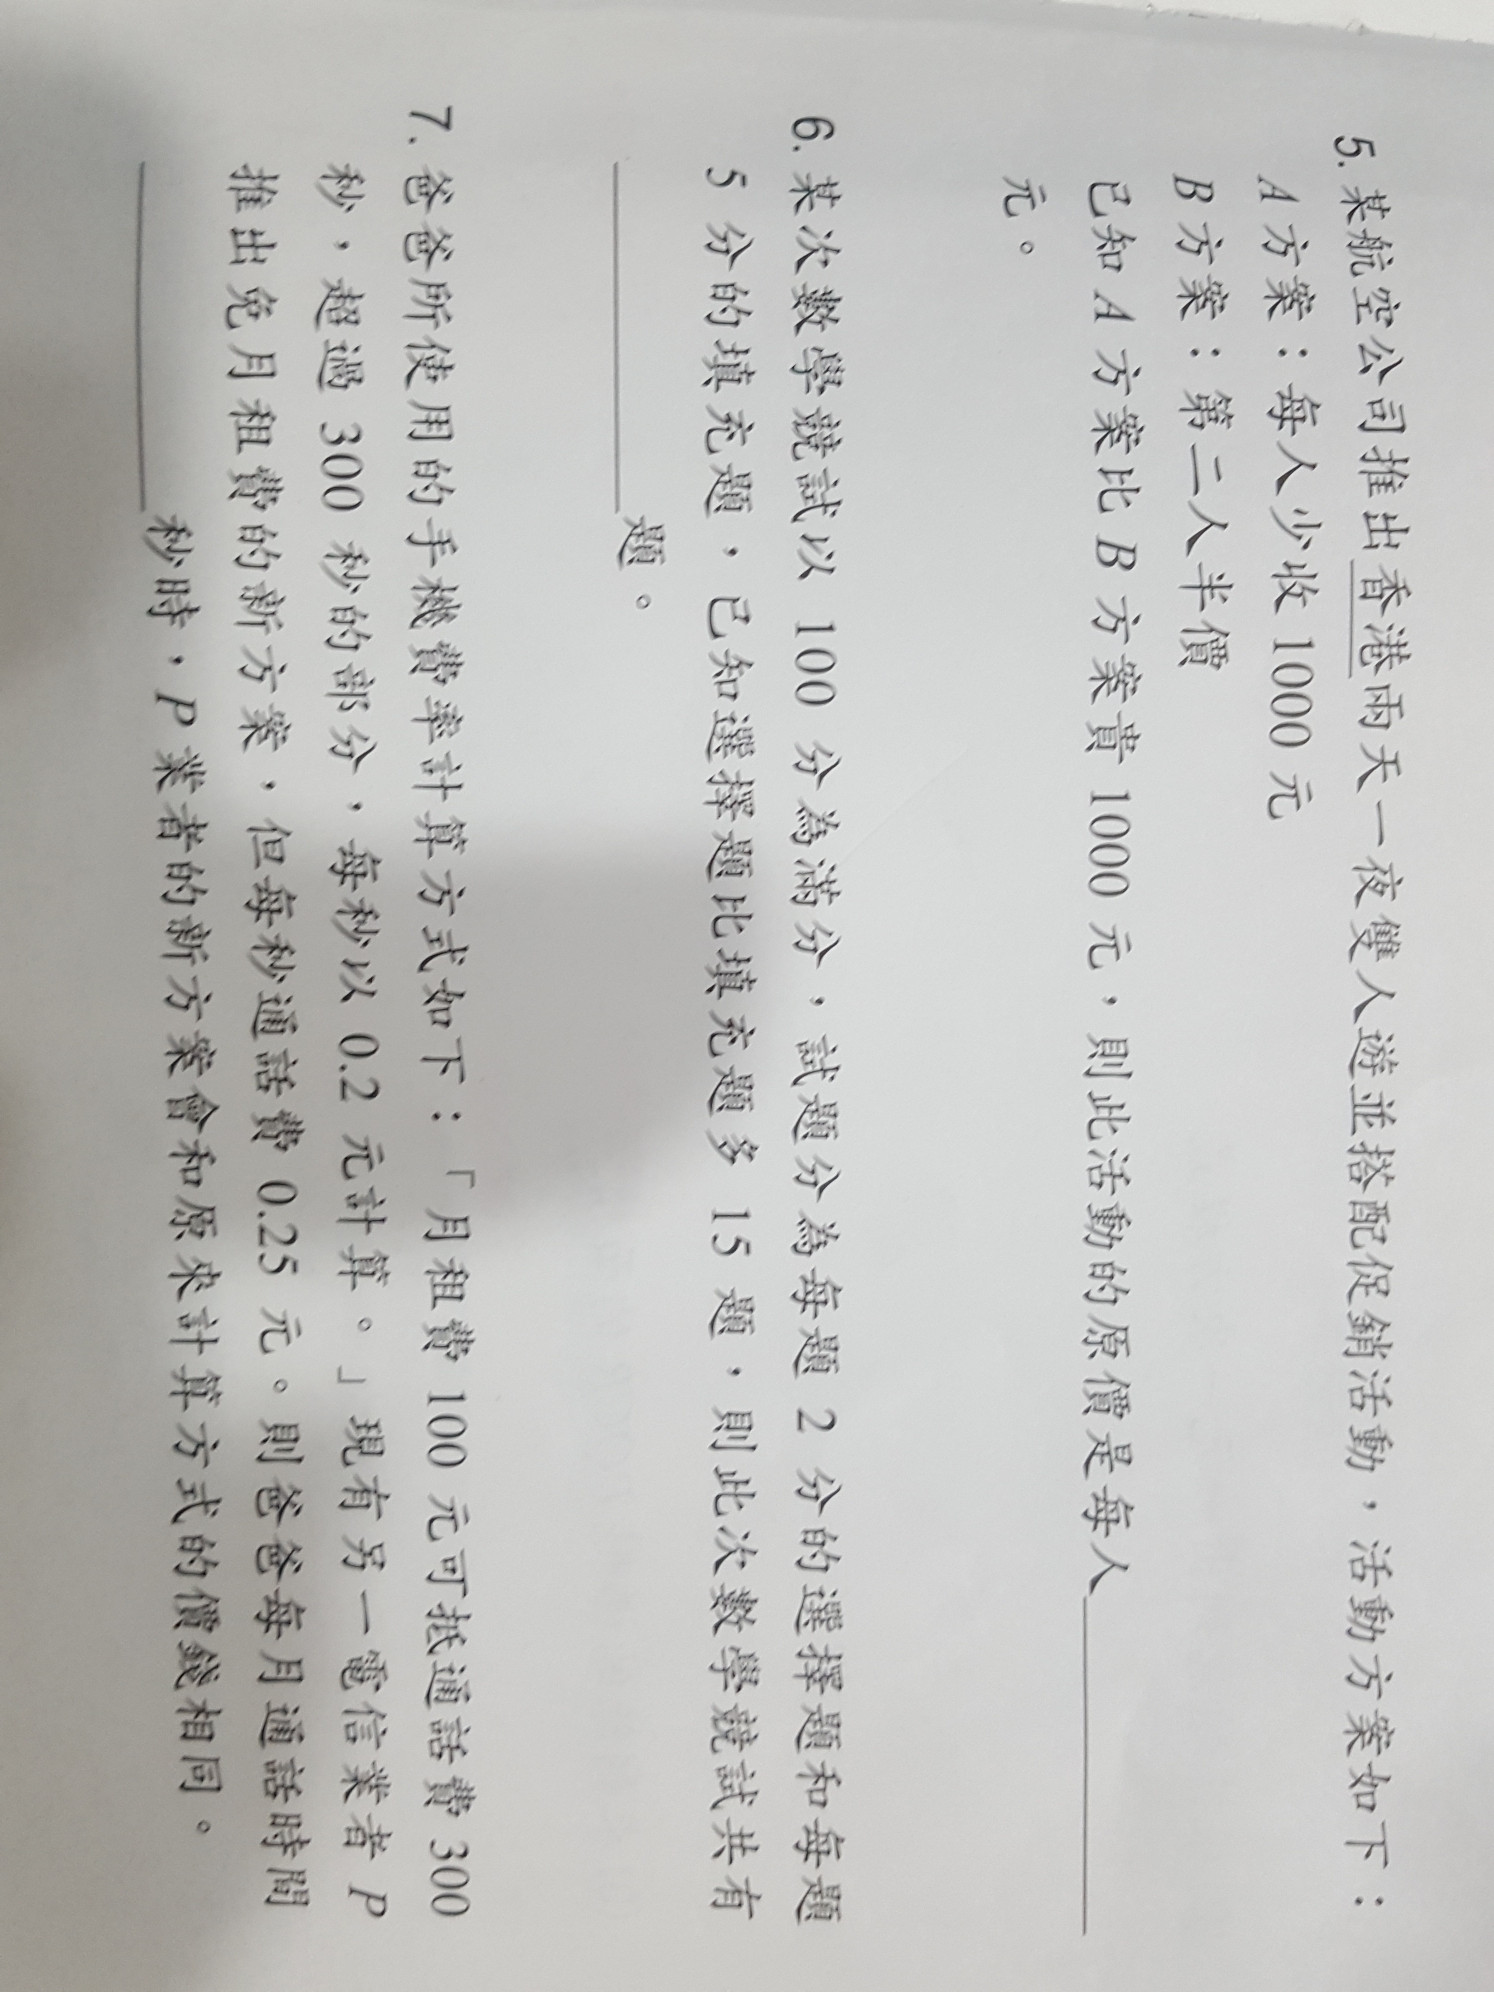 5. 某航空公司推出香港兩天一夜雙人遊並搭配促銷活動，活動方案如下：
A 方案：每人少收 1000 元
B 方案：第二人半價
已知 A 方案比 B 方案貴 1000 元，則此活動的原價是每人＿＿＿＿＿＿
元。
6. 某次數學競試以 100 分為滿分，試題分為每題 2 分的選擇題和每題
5 分的填充題，已知選擇題比填充題多 15 題，則此次數學競試共有
＿＿＿＿＿＿題。
7. 爸爸所使用的手機費率計算方式如下：「月租費 100 元可抵通話費 300
秒，超過 300 秒的部分，每秒以 0.2 元計算。」現有另一電信業者 P
推出免月租費的新方案，但每秒通話費 0.25 元。則爸爸每月通話時間
＿＿＿＿＿＿秒時，P 業者的新方案會和原來計算方式的價錢相同。